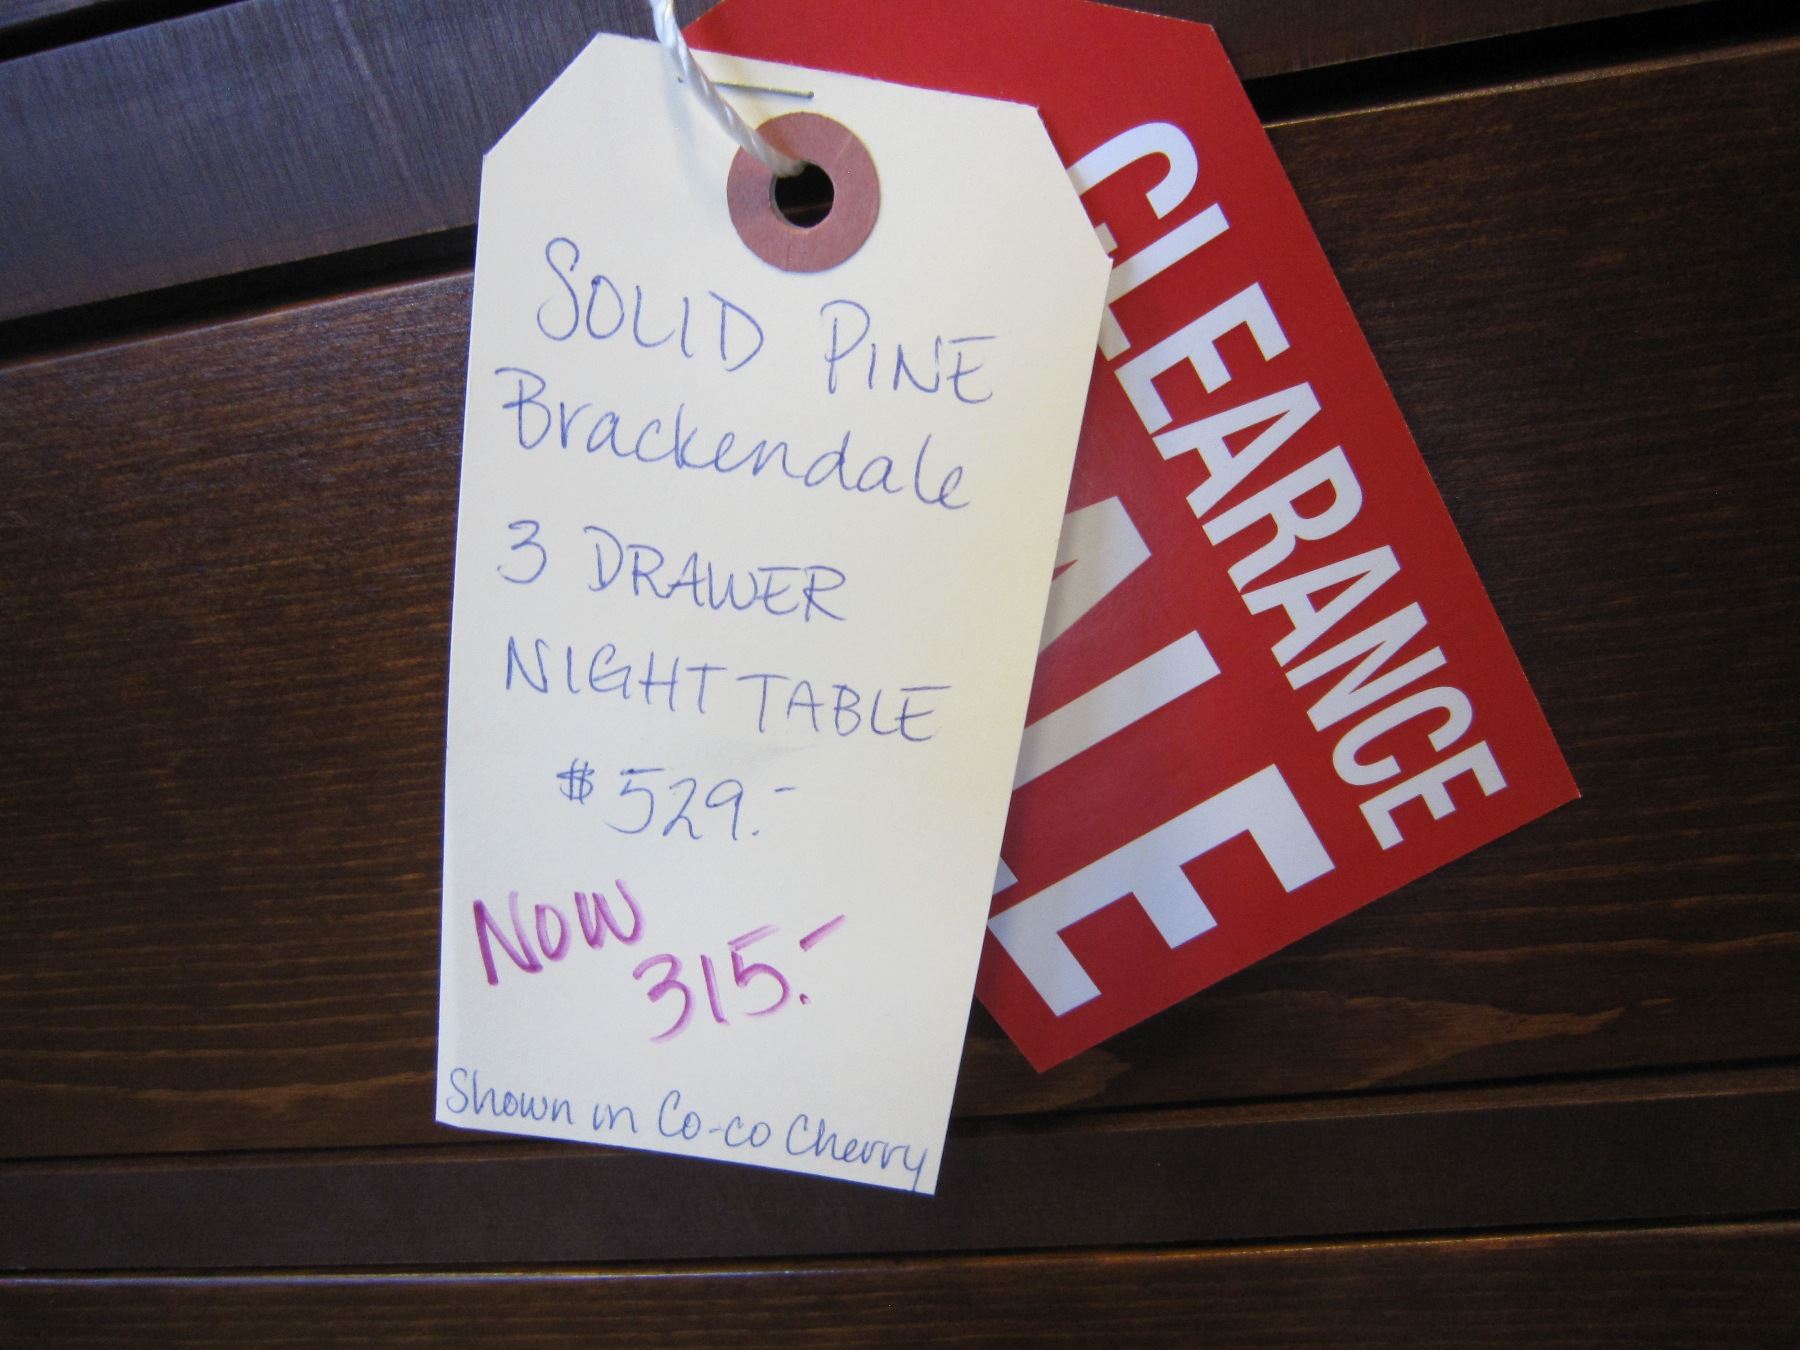 SOLID PINE
Brackendale
3 DRAWER
NIGHT TABLE
$529.-
NOW
315.-
Shown in Co-co Cherry
CLEARANCE
ALE